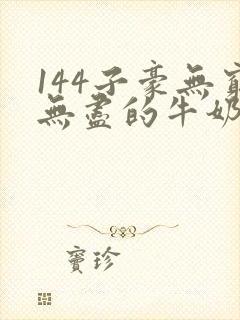 144子豪無窮
無盡的牛奶
竇珍